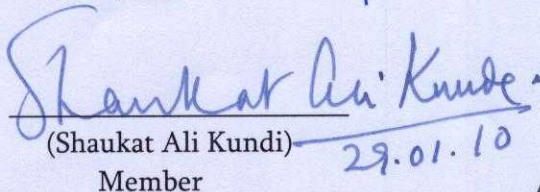 Shaukat Ali Kunde.
(Shaukat Ali Kundi)
29.01.10
Member